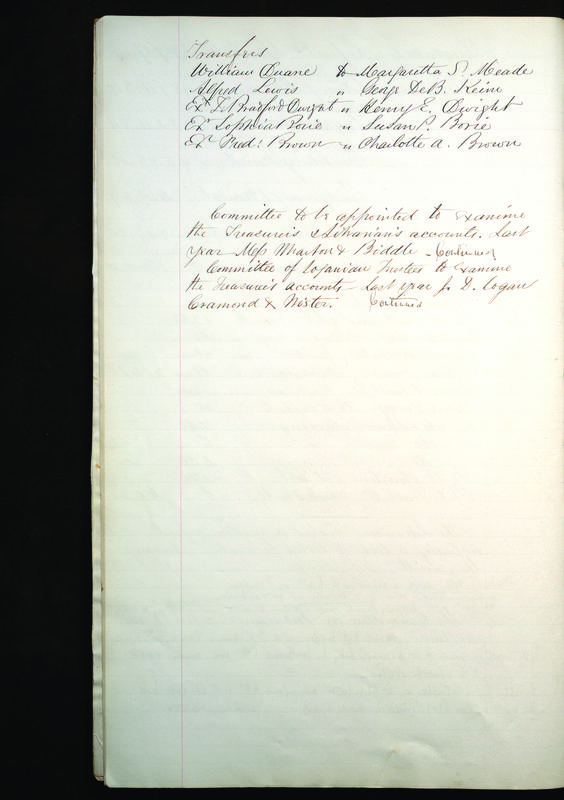 Transfers
William Duane to Margaretta S. Meade
Alfred Lewis " George DeB. Keim
Exr. D. Bradford Dwight " Henry E. Dwight
Exr. Sophia Borie " Susan P. Borie
Exr. Fred: Brown " Charlotte A. Brown
Committee to be appointed to examine
the Treasurer's & Librarian's accounts. Last
year Mess Wharton & Biddle - Continued
Committee of Loganian Trustees to examine
the Treasurer's accounts - Last year J. D. Logan
Cramond & Wister. Continued